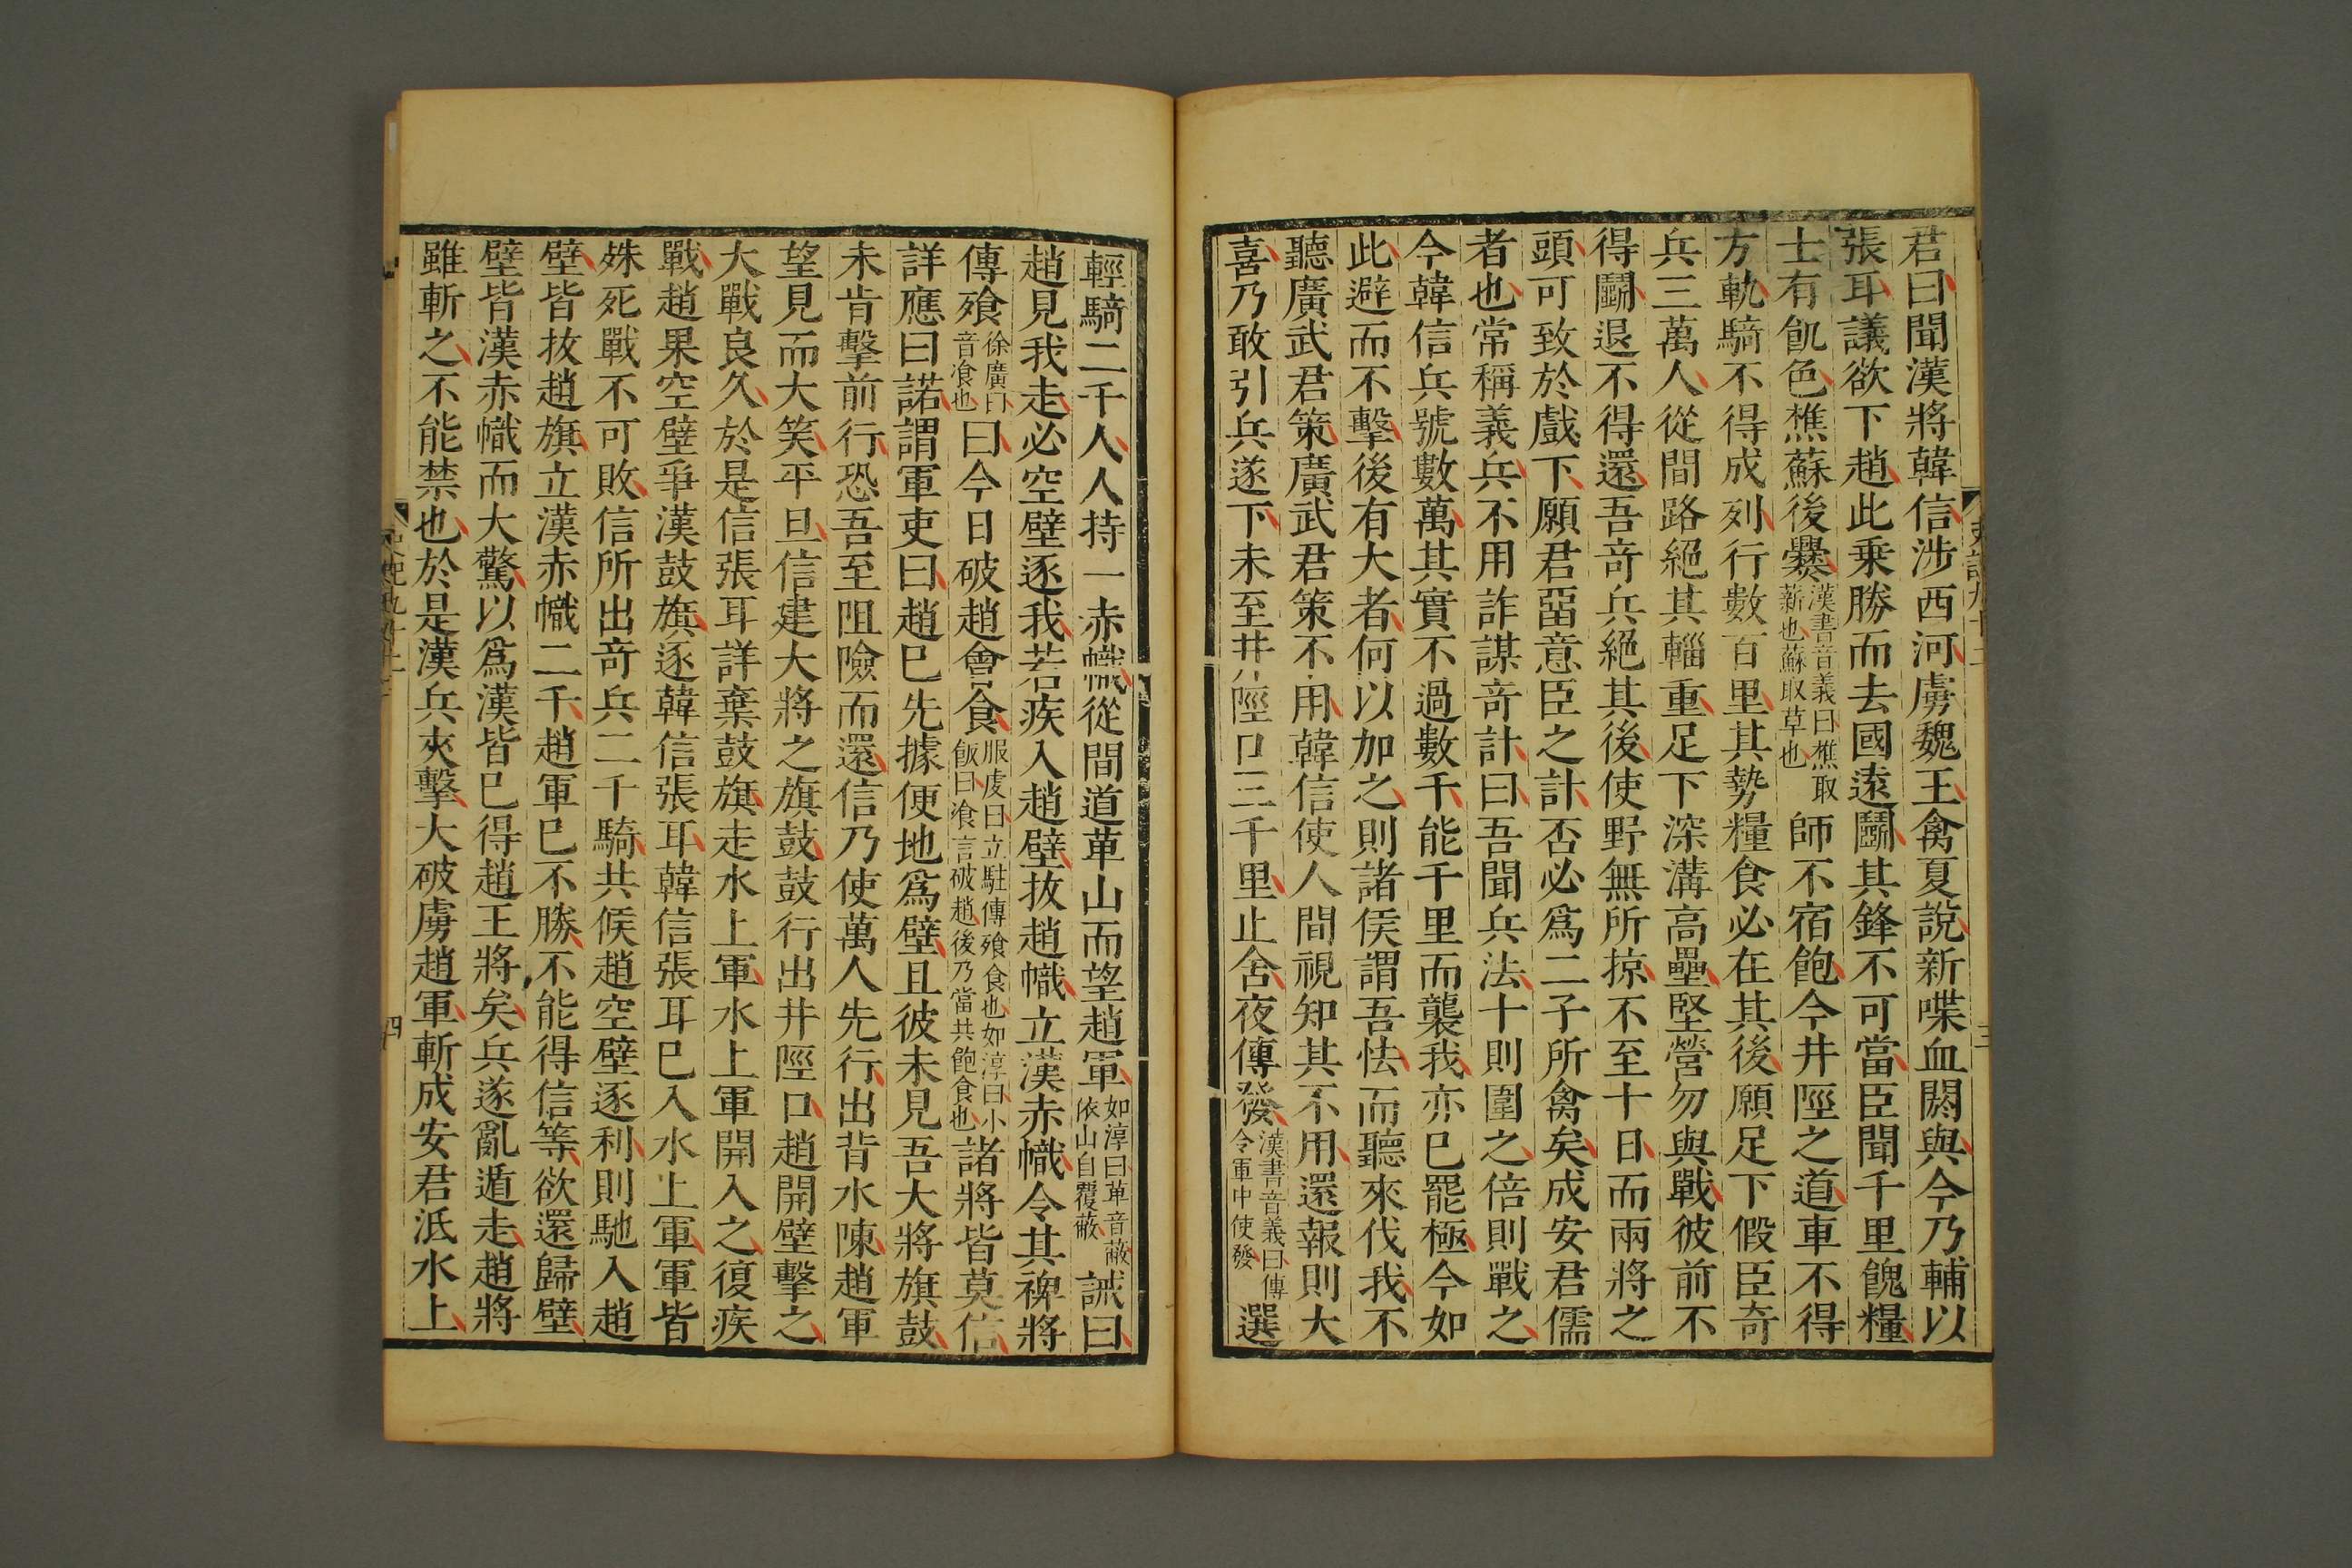 君曰聞漢將韓信涉西河虜魏王禽夏說新喋血閼與今乃輔以
張耳議欲下趙此乗勝而去國遠鬬其鋒不可當臣聞千里餽糧
士有飢色樵蘇後爨漢書音義曰樵取薪也蘇取草也師不宿飽今井陘之道車不得
方軌騎不得成列行數百里其勢糧食必在其後願足下假臣奇
兵三萬人從間路絕其輜重足下深溝高壘堅營勿與戰彼前不
得鬬退不得還吾竒兵絕其後使野無所掠不至十日而兩將之
頭可致於戲下願君畱意臣之計否必爲二子所禽矣成安君儒
者也常稱義兵不用詐謀竒計曰吾聞兵法十則圍之倍則戰之
今韓信兵號數萬其實不過數千能千里而襲我亦已罷極今如
此避而不擊後有大者何以加之則諸侯謂吾怯而輕來伐我不
聽廣武君策廣武君策不用韓信使人間視知其不用還報則大
喜乃敢引兵遂下未至井陘口三千里止舍夜傳發漢書音義曰傳令軍中使發選
輕騎二千人人持一赤幟從間道萆山而望趙軍如淳曰萆音蔽依山自覆蔽誡曰
趙見我走必空壁逐我若疾入趙壁拔趙幟立漢赤幟令其裨將
傳飱徐廣曰音飡也曰今日破趙會食服虔曰立駐傳飱食也如淳曰小飯曰飡言破趙後乃當共飽食也諸將皆莫信
詳應曰諾謂軍吏曰趙已先據便地爲壁且彼未見吾大將旗鼓
未肯擊前行恐吾至阻險而還信乃使萬人先行出背水陳趙軍
望見而大笑平旦信建大將之旗鼓鼓行出井陘口趙開壁擊之
大戰良久於是信張耳詳棄鼓旗走水上軍水上軍開入之復疾
戰趙果空壁爭漢鼓旗逐韓信張耳韓信張耳已入水上軍軍皆
殊死戰不可敗信所出竒兵二千騎共候趙空壁逐利則馳入趙
壁皆拔趙旗立漢赤幟二千趙軍已不勝不能得信等欲還歸壁
壁皆漢赤幟而大驚以爲漢皆已得趙王將矣兵遂亂遁走趙將
雖斬之不能禁也於是漢兵夾擊大破虜趙軍斬成安君泜水上